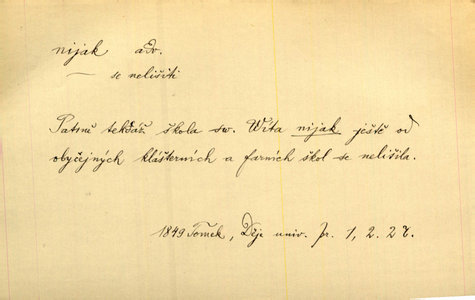 nijak adv.
— se nelišiti
Patrně tehdáž škola sw. Wíta nijak ještě od
obyčejných klášterních a farních škol se nelišila.
1849 Tomek, Děje univ. pr. 1, 2. 27.